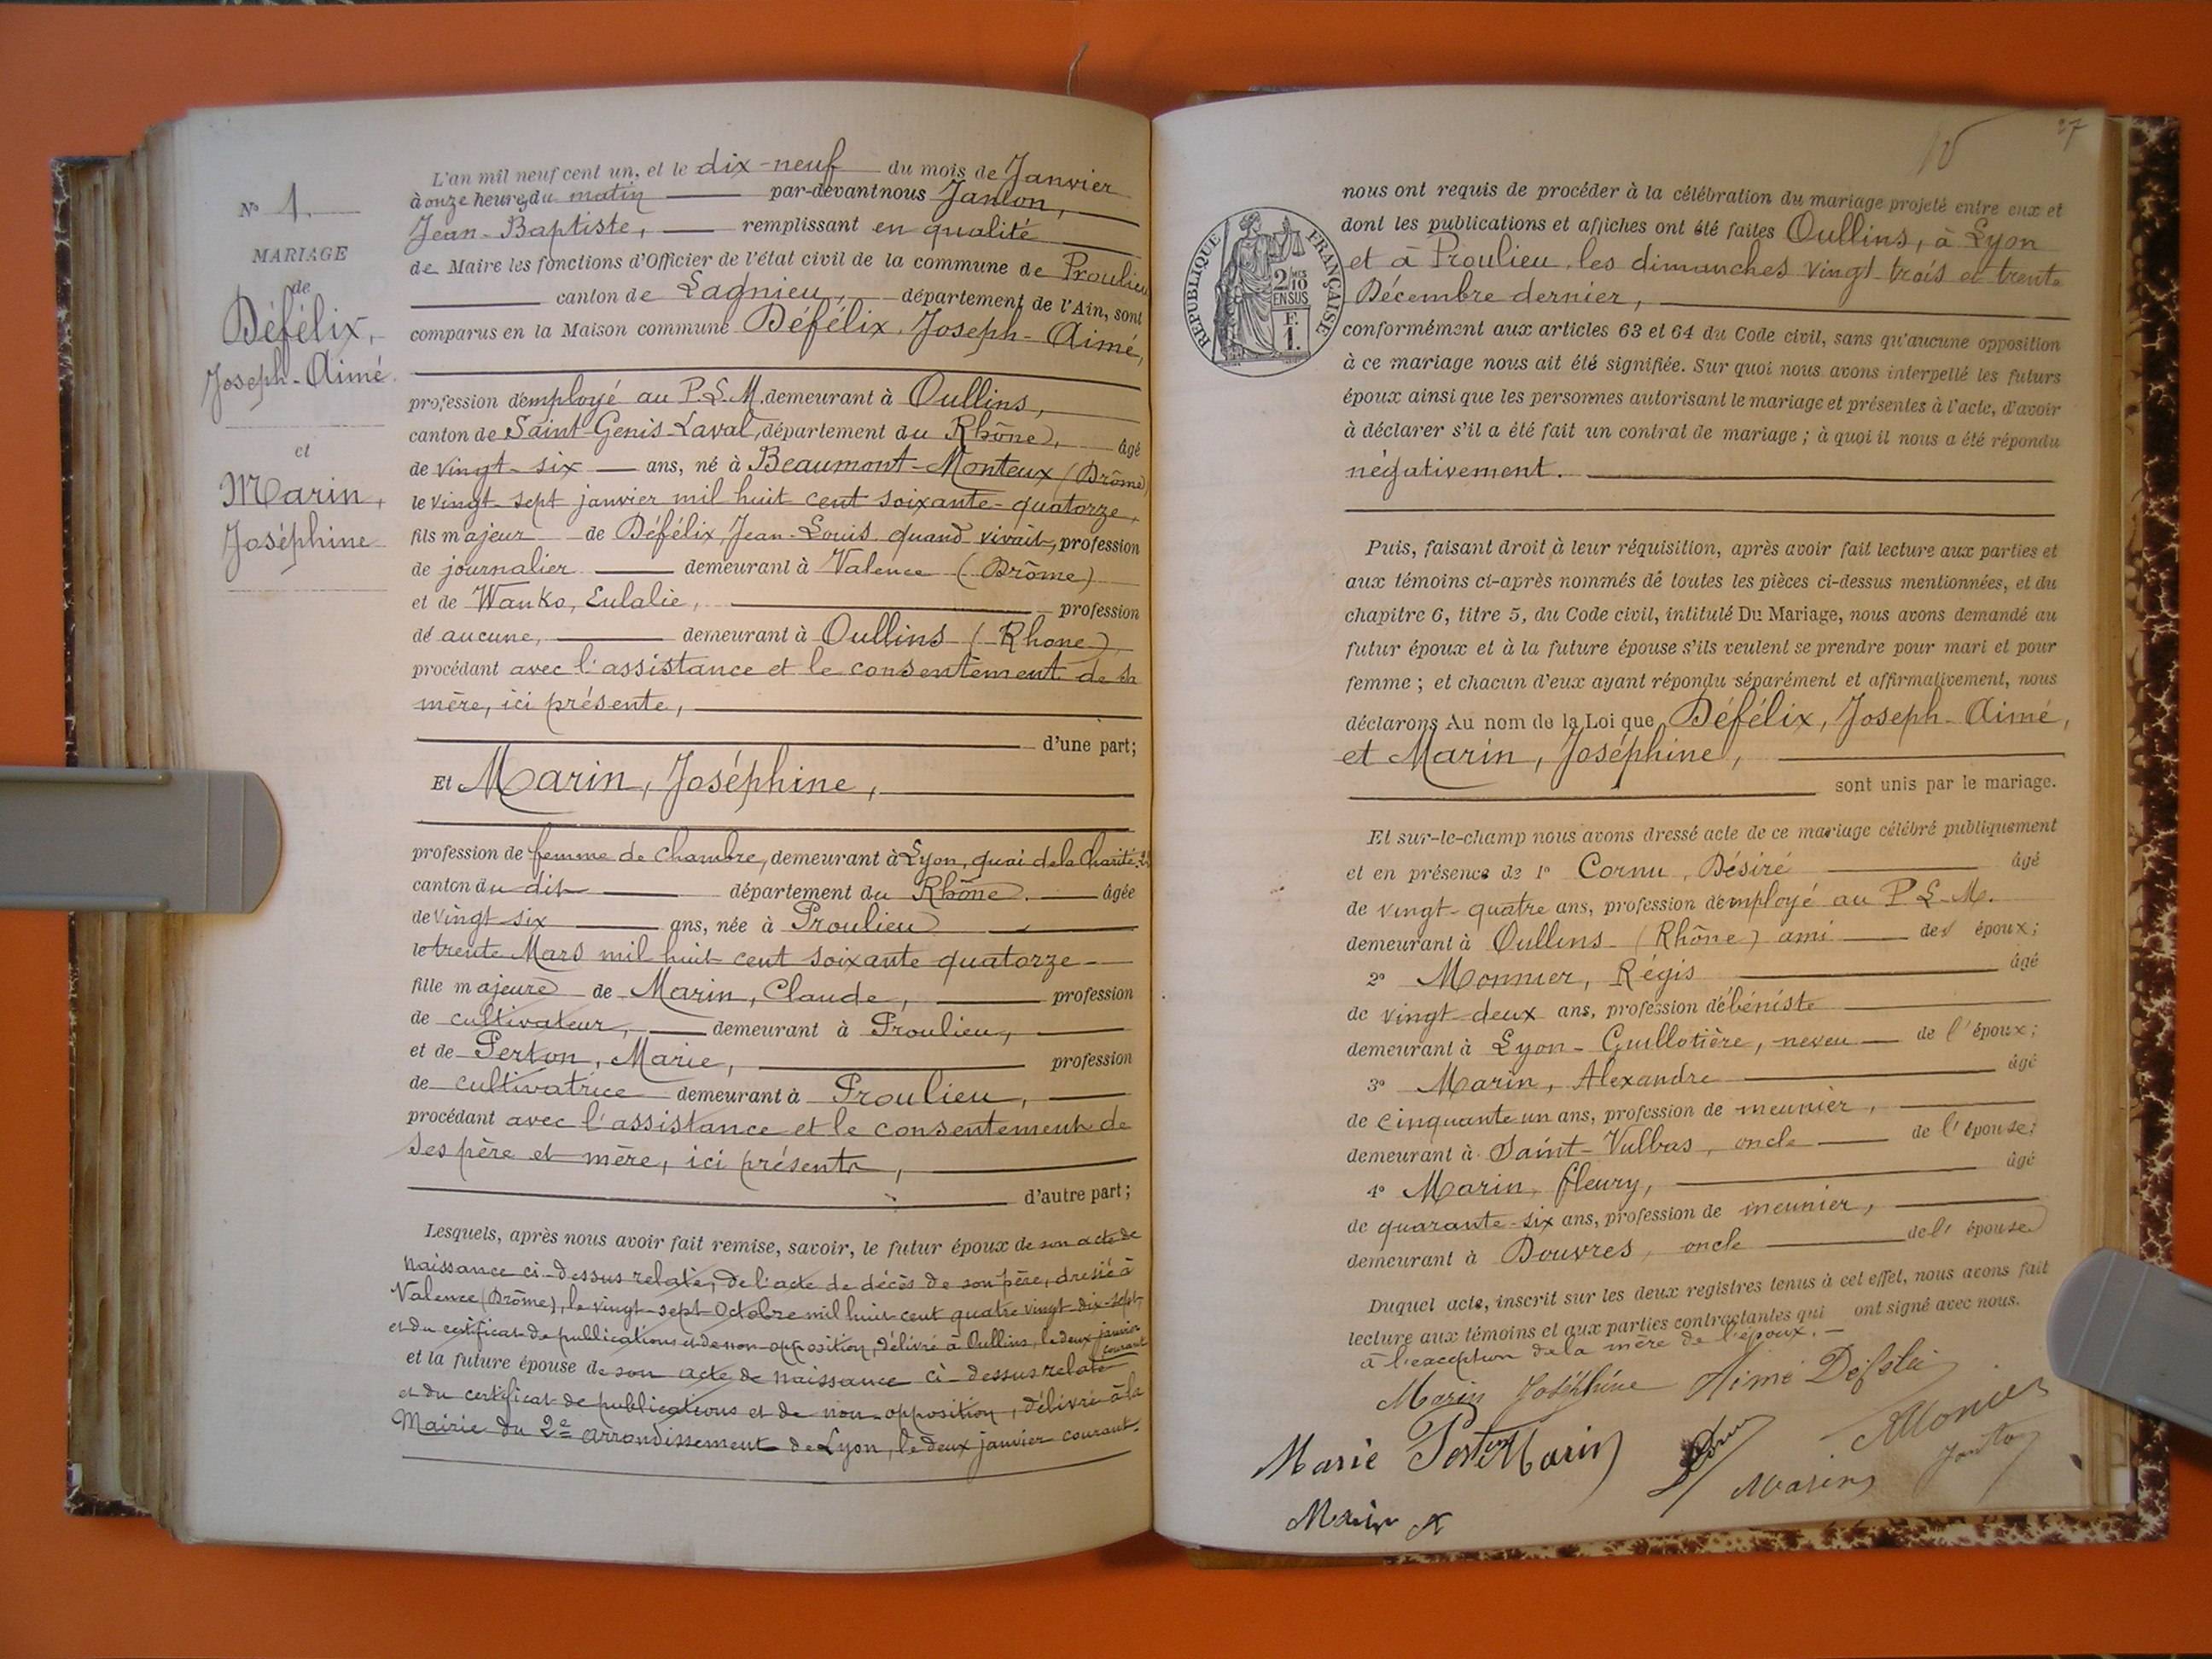 N° 1.
MARIAGE
de
Défélix,
Joseph-Aimé.
et
Marin,
Joséphine
L'an mil neuf cent un, et le dix-neuf du mois de Janvier
à onze heures du matin par-devant nous Janton,
Jean-Baptiste, remplissant en qualité
de Maire les fonctions d'Officier de l'état civil de la commune de Proulieu
canton de Lagnieu, département de l'Ain, sont
comparus en la Maison commune Défélix, Joseph-Aimé,
profession d'employé au P.L.M. demeurant à Oullins,
canton de Saint-Genis-Laval, département du Rhône, âgé
de vingt-six ans, né à Beaumont-Monteux (Drôme)
le vingt-sept janvier mil huit cent soixante-quatorze,
fils majeur de Défélix, Jean-Louis quand vivait, profession
de journalier demeurant à Valence (Drôme)
et de Wanko, Eulalie, profession
de aucune, demeurant à Oullins (Rhone)
procédant avec l'assistance et le consentement de sa
mère, ici présente,
d'une part;
Et Marin, Joséphine,
profession de femme de chambre, demeurant à Lyon, quai de la Charité
canton du dit département du Rhône. âgée
de vingt-six ans, née à Proulieu
le trente Mars mil huit cent soixante quatorze
fille majeure de Marin, Claude, profession
de cultivateur, demeurant à Proulieu,
et de Perton, Marie, profession
de cultivatrice demeurant à Proulieu,
procédant avec l'assistance et le consentement de
ses père et mère, ici présents,
d'autre part;
Lesquels, après nous avoir fait remise, savoir, le futur époux de son acte de
naissance ci-dessus relaté, de l'acte de décès de son père, dressé à
Valence (Drôme), le vingt-sept Octobre mil huit cent quatre vingt dix-sept,
et du certificat de publications et de non-opposition, délivré à Oullins, le deux janvier
courant
et la future épouse de son acte de naissance ci-dessus relaté
et du certificat de publications et de non-opposition, délivré à la
Mairie du 2e arrondissement de Lyon, le deux janvier courant.
27
RÉPUBLIQUE FRANÇAISE
2/10 MES
EN SUS
F.
1.
nous ont requis de procéder à la célébration du mariage projeté entre eux et
dont les publications et affiches ont été faites Oullins, à Lyon
et à Proulieu, les dimanches vingt-trois et trente
Décembre dernier,
conformément aux articles 63 et 64 du Code civil, sans qu'aucune opposition
à ce mariage nous ait été signifiée. Sur quoi nous avons interpellé les futurs
époux ainsi que les personnes autorisant le mariage et présentes à l'acte, d'avoir
à déclarer s'il a été fait un contrat de mariage; à quoi il nous a été répondu
négativement.
Puis, faisant droit à leur réquisition, après avoir fait lecture aux parties et
aux témoins ci-après nommés de toutes les pièces ci-dessus mentionnées, et du
chapitre 6, titre 5, du Code civil, intitulé Du Mariage, nous avons demandé au
futur époux et à la future épouse s'ils veulent se prendre pour mari et pour
femme; et chacun d'eux ayant répondu séparément et affirmativement, nous
déclarons Au nom de la Loi que Défélix, Joseph-Aimé,
et Marin, Joséphine,
sont unis par le mariage.
Et sur-le-champ nous avons dressé acte de ce mariage célébré publiquement
et en présence de 1° Cornu, Désiré âgé
de vingt-quatre ans, profession d'employé au P.L.M.
demeurant à Oullins (Rhône) ami des époux;
2° Monnier, Régis âgé
de vingt-deux ans, profession d'ébéniste
demeurant à Lyon-Guillotière, neveu de l'époux;
3° Marin, Alexandre âgé
de cinquante un ans, profession de meunier,
demeurant à Saint-Vulbas, oncle de l'épouse;
4° Marin, fleury, âgé
de quarante-six ans, profession de meunier,
demeurant à Douvres, oncle de l'épouse
Duquel acte, inscrit sur les deux registres tenus à cet effet, nous avons fait
lecture aux témoins et aux parties contractantes qui ont signé avec nous.
à l'exception de la mère de l'époux.
Marin Joséphine Aimé Défélix
Marie Perton Marin
Marin Janton
Marin